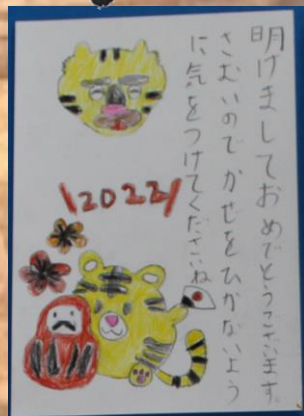 明けましておめでとうございます。
さむいのでかぜをひかないよう
に気をつけてくださいね
\2022/